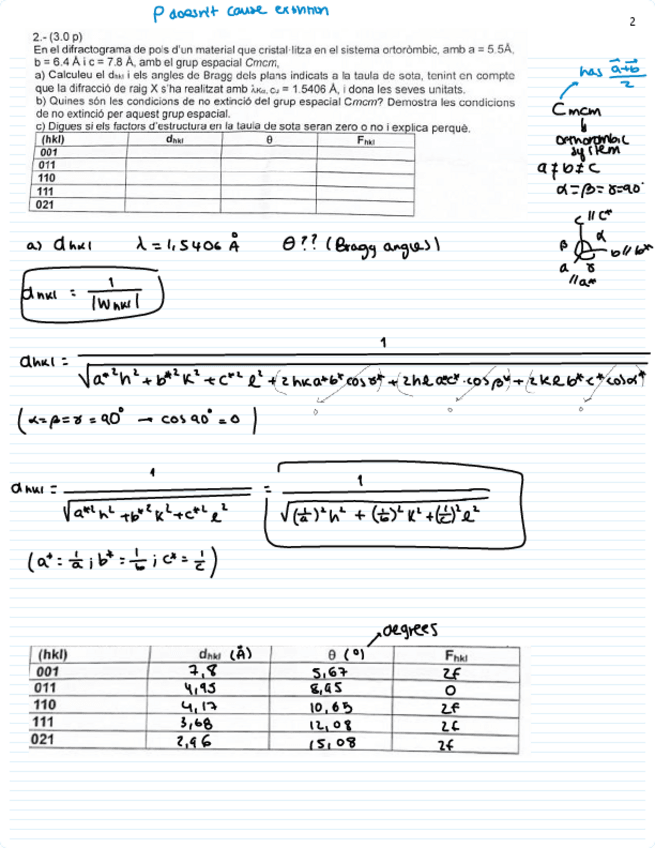 P doesn't cause extinction
2
2.- (3.0 p)
En el difractograma de pols d'un material que cristal·litza en el sistema ortoròmbic, amb a = 5.5Å,
b = 6.4 Å i c = 7.8 Å, amb el grup espacial Cmcm,
a) Calculeu el dhkl i els angles de Bragg dels plans indicats a la taula de sota, tenint en compte
que la difracció de raig X s'ha realitzat amb λKα, Cu = 1.5406 Å, i dona les seves unitats.
b) Quines són les condicions de no extinció del grup espacial Cmcm? Demostra les condicions
de no extinció per aquest grup espacial.
c) Digues si els factors d'estructura en la taula de sota seran zero o no i explica perquè.
(hkl) dhkl θ Fhkl
001
011
110
111
021
has (a+b)/2
Cmcm
orthorombic
system
a ≠ b ≠ c
α = β = γ = 90°
c // c*
α
β
b // b*
a γ
// a*
a) dhkl λ = 1,5406 Å θ?? (Bragg angles)
dhkl = 1 / |Whkl|
dhkl = 1 / √(a*²h² + b*²k² + c*²l² + (2hka*b* cos γ*) + (2hla*c*·cos β*) + (2klb*c* cos α*))
0 0 0
(α = β = γ = 90° → cos 90° = 0)
dhkl = 1 / √(a*²h² + b*²k² + c*²l²) = 1 / √((1/a)²h² + (1/b)²k² + (1/c)²l²)
(a* = 1/a ; b* = 1/b ; c* = 1/c)
degrees
(hkl) dhkl (Å) θ (°) Fhkl
001 7,8 5,67 2f
011 4,95 8,95 0
110 4,17 10,65 2f
111 3,68 12,08 2f
021 2,96 15,08 2f